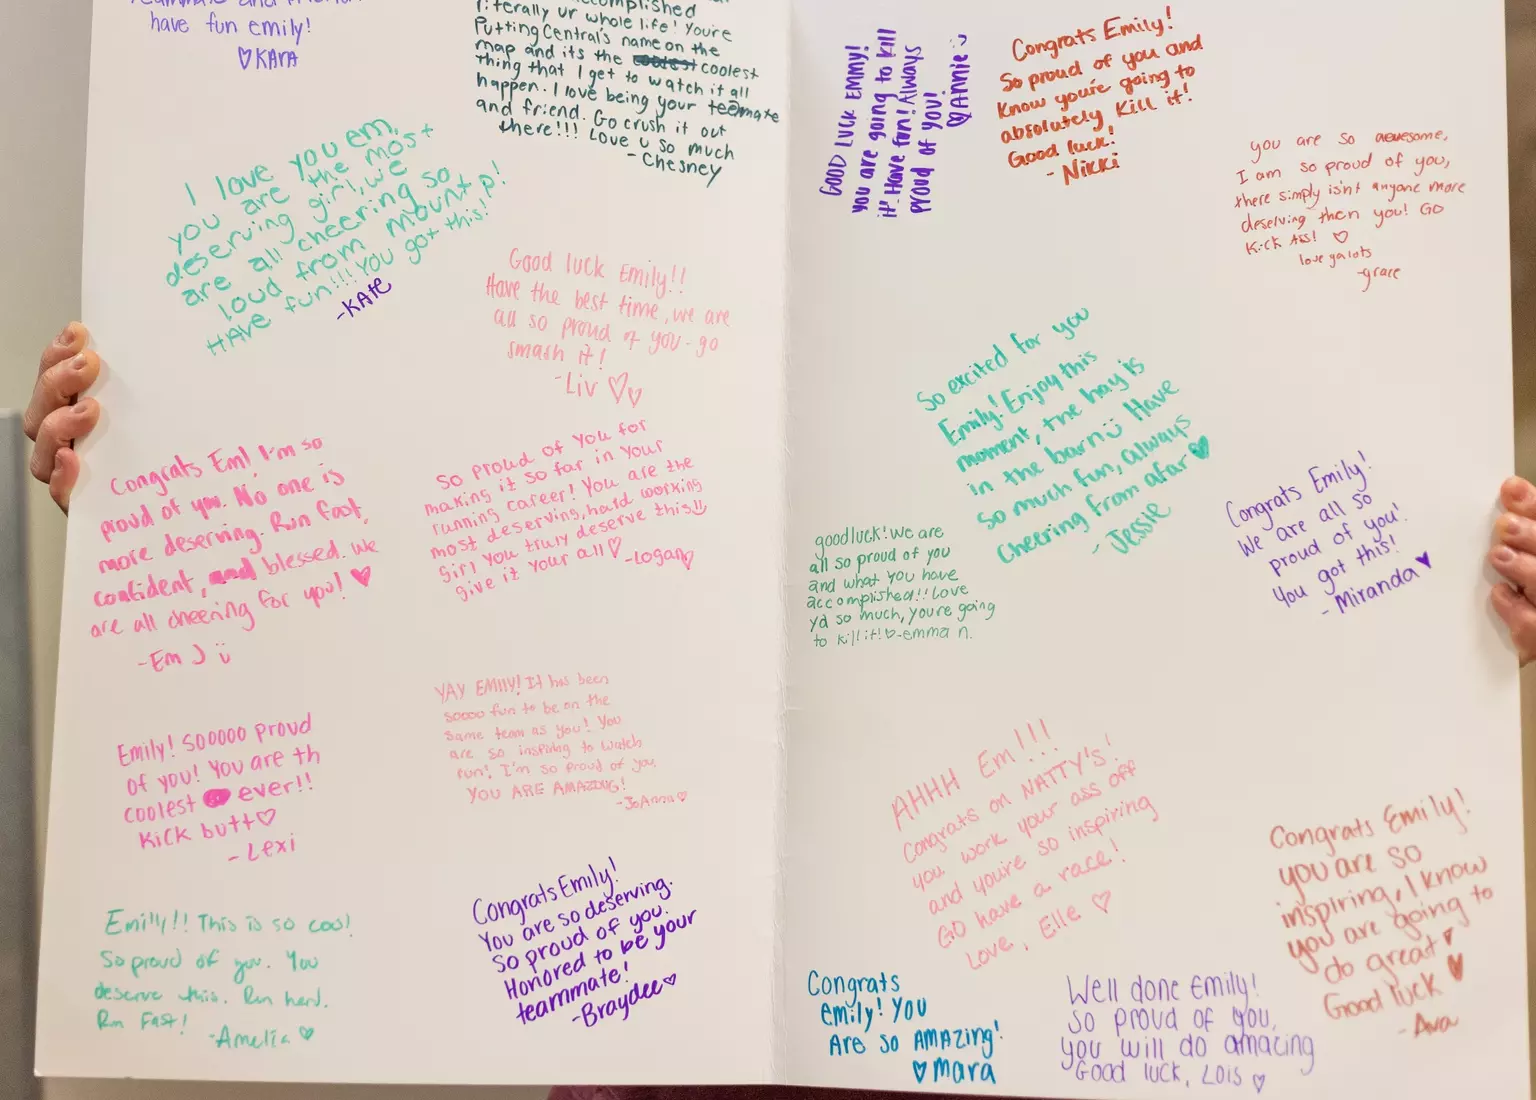 have fun emily!
♡KARA
literally ur whole life! You're
Putting Central's name on the
map and its the coolest
thing that I get to watch it all
happen. I love being your teammate
and friend. Go crush it out
there!!! Love u so much
- Chesney
I love you em,
you are the most
deserving girl, we
are all cheering so
loud from mount p!
HAVe fun!!!! You got this!
-KAte
Good luck Emily!!
Have the best time, we are
all so proud of you - go
smash it!
-Liv ♡♡
Congrats Em! I'm so
proud of you. No one is
more deserving. Run fast,
confident, and blessed. We
are all cheering for you! ♥
-Em J ü
So proud of you for
making it so far in your
running career! You are the
most deserving, hard working
girl you truly deserve this!!
give it your all♡
-Logan♡
Emily! Sooooo proud
of you! You are th
coolest ever!!
Kick butt♡
- Lexi
YAY EMILY! It has been
soooo fun to be on the
same team as you! You
are so inspiring to watch
run! I'm so proud of you,
YOU ARE AMAZING!
-JoAnna♡
Emilly!! This is so cool!
So proud of you. You
deserve this. Run hard.
Run Fast!
-Amelia ♡
Congrats Emily!
You are so deserving.
So proud of you.
Honored to be your
teammate!
-Braydee♡
GOOD LUCK EMMY!
you are going to kill
it! Have fun! Always
proud of you!
♡Annie :)
Congrats Emily!
So proud of you and
know you're going to
absolutely kill it!
Good luck!
- Nikki
you are so awesome,
I am so proud of you,
there simply isn't anyone more
deserving then you! GO
Kick Ass! ♡
love ya lots
-grace
So excited for you
Emily! Enjoy this
moment, the hay is
in the barn:) Have
so much fun, always
cheering from afar♥
- Jessie
goodluck! We are
all so proud of you
and what you have
accomplished!! Love
ya so much, you're going
to kill it! ♡-emma n.
Congrats Emily!
We are all so
proud of you!
You got this!
- Miranda♥
AHHH Em!!!
Congrats on NATTY's!
you work your ass off
and you're so inspiring
GO have a race!
Love, Elle ♡
Congrats Emily!
you are so
inspiring, I know
you are going to
do great!
Good luck ♥
- Ava
Congrats
emily! You
Are so AMAzing!
♥mara
Well done Emily!
So proud of you,
you will do amazing
Good luck, Lois ♡